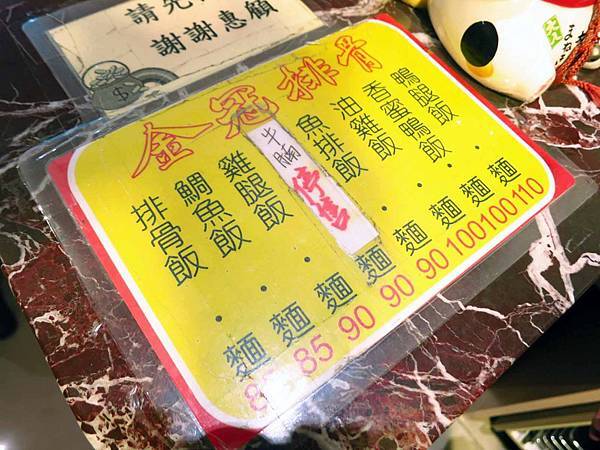 請先
謝謝惠顧
金冠排骨
排骨飯．麵
鯛魚飯．麵 85
雞腿飯．麵 90
牛腩停售 麵 90
魚排飯．麵 90
油雞飯．麵 100
香蜜鴨飯．麵 100
鴨腿飯．麵 110